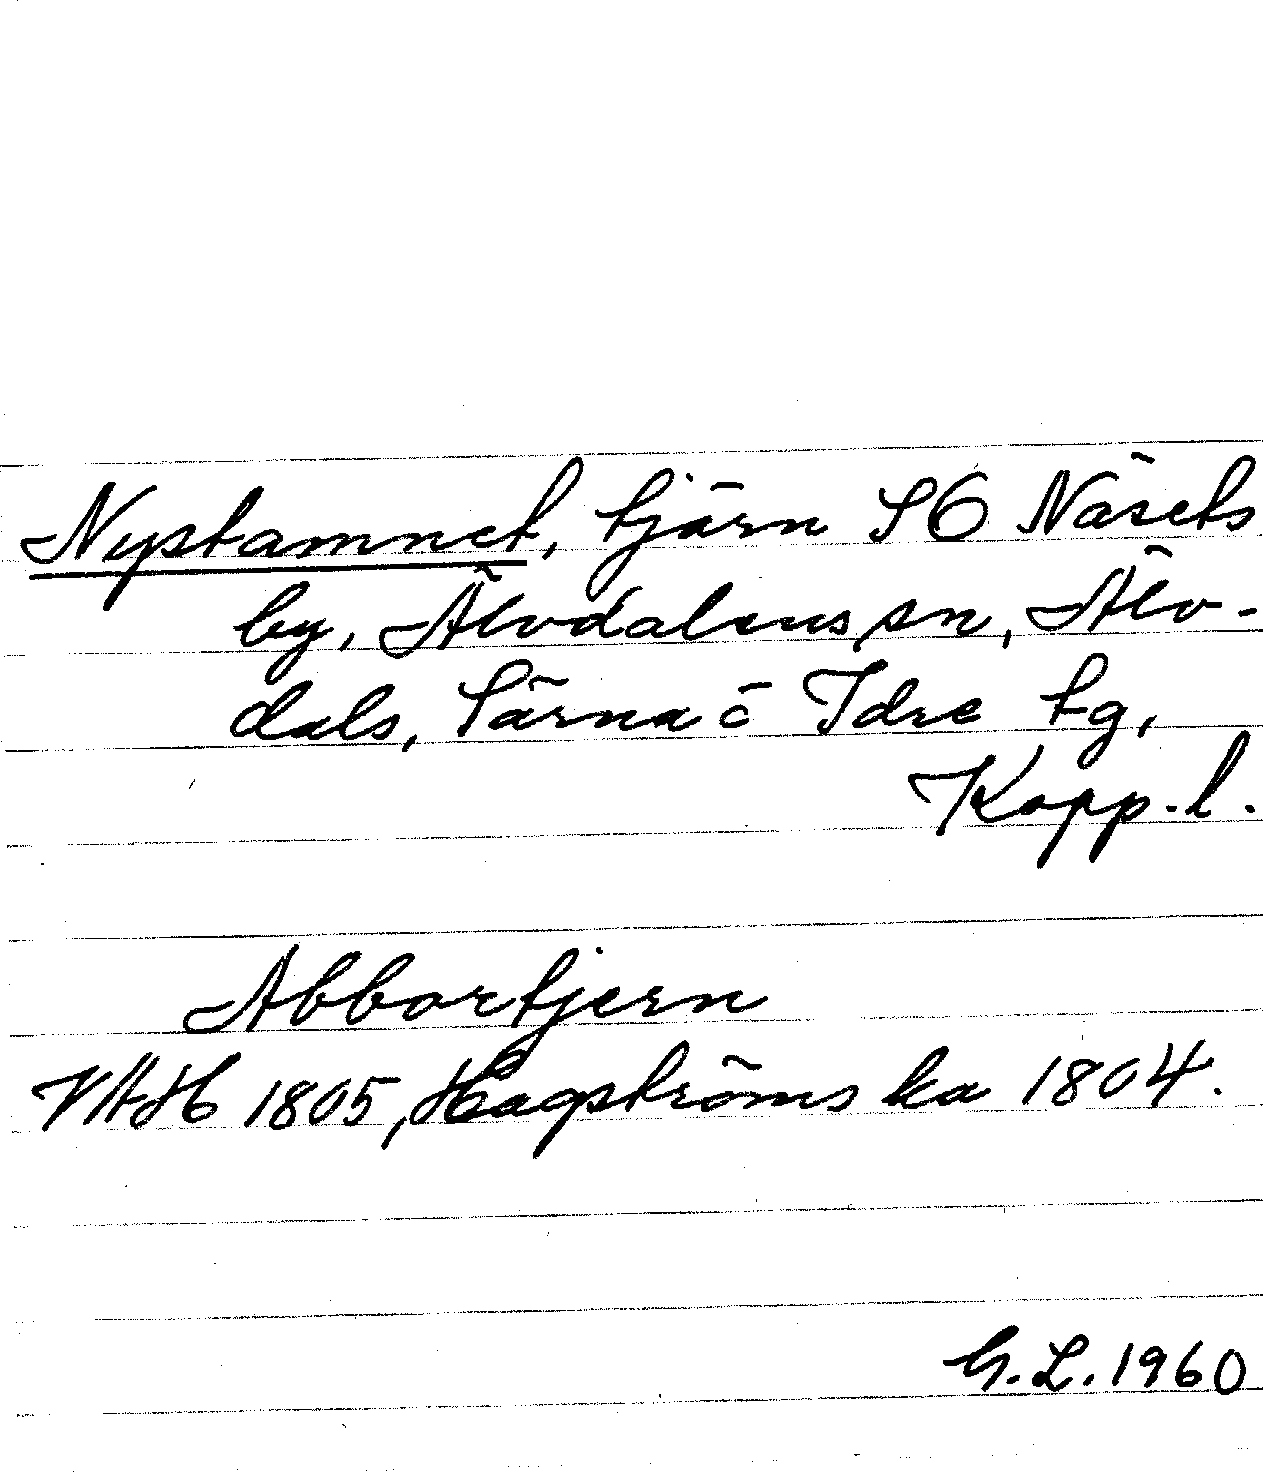 Nystamnet, tjärn SÖ Näsets
by, Älvdalens sn, Älv-
dals, Särna o Idre tg,
Kopp. l.
Abbortjern
VAH 1805, Hagströms ka 1804.
G. L. 1960